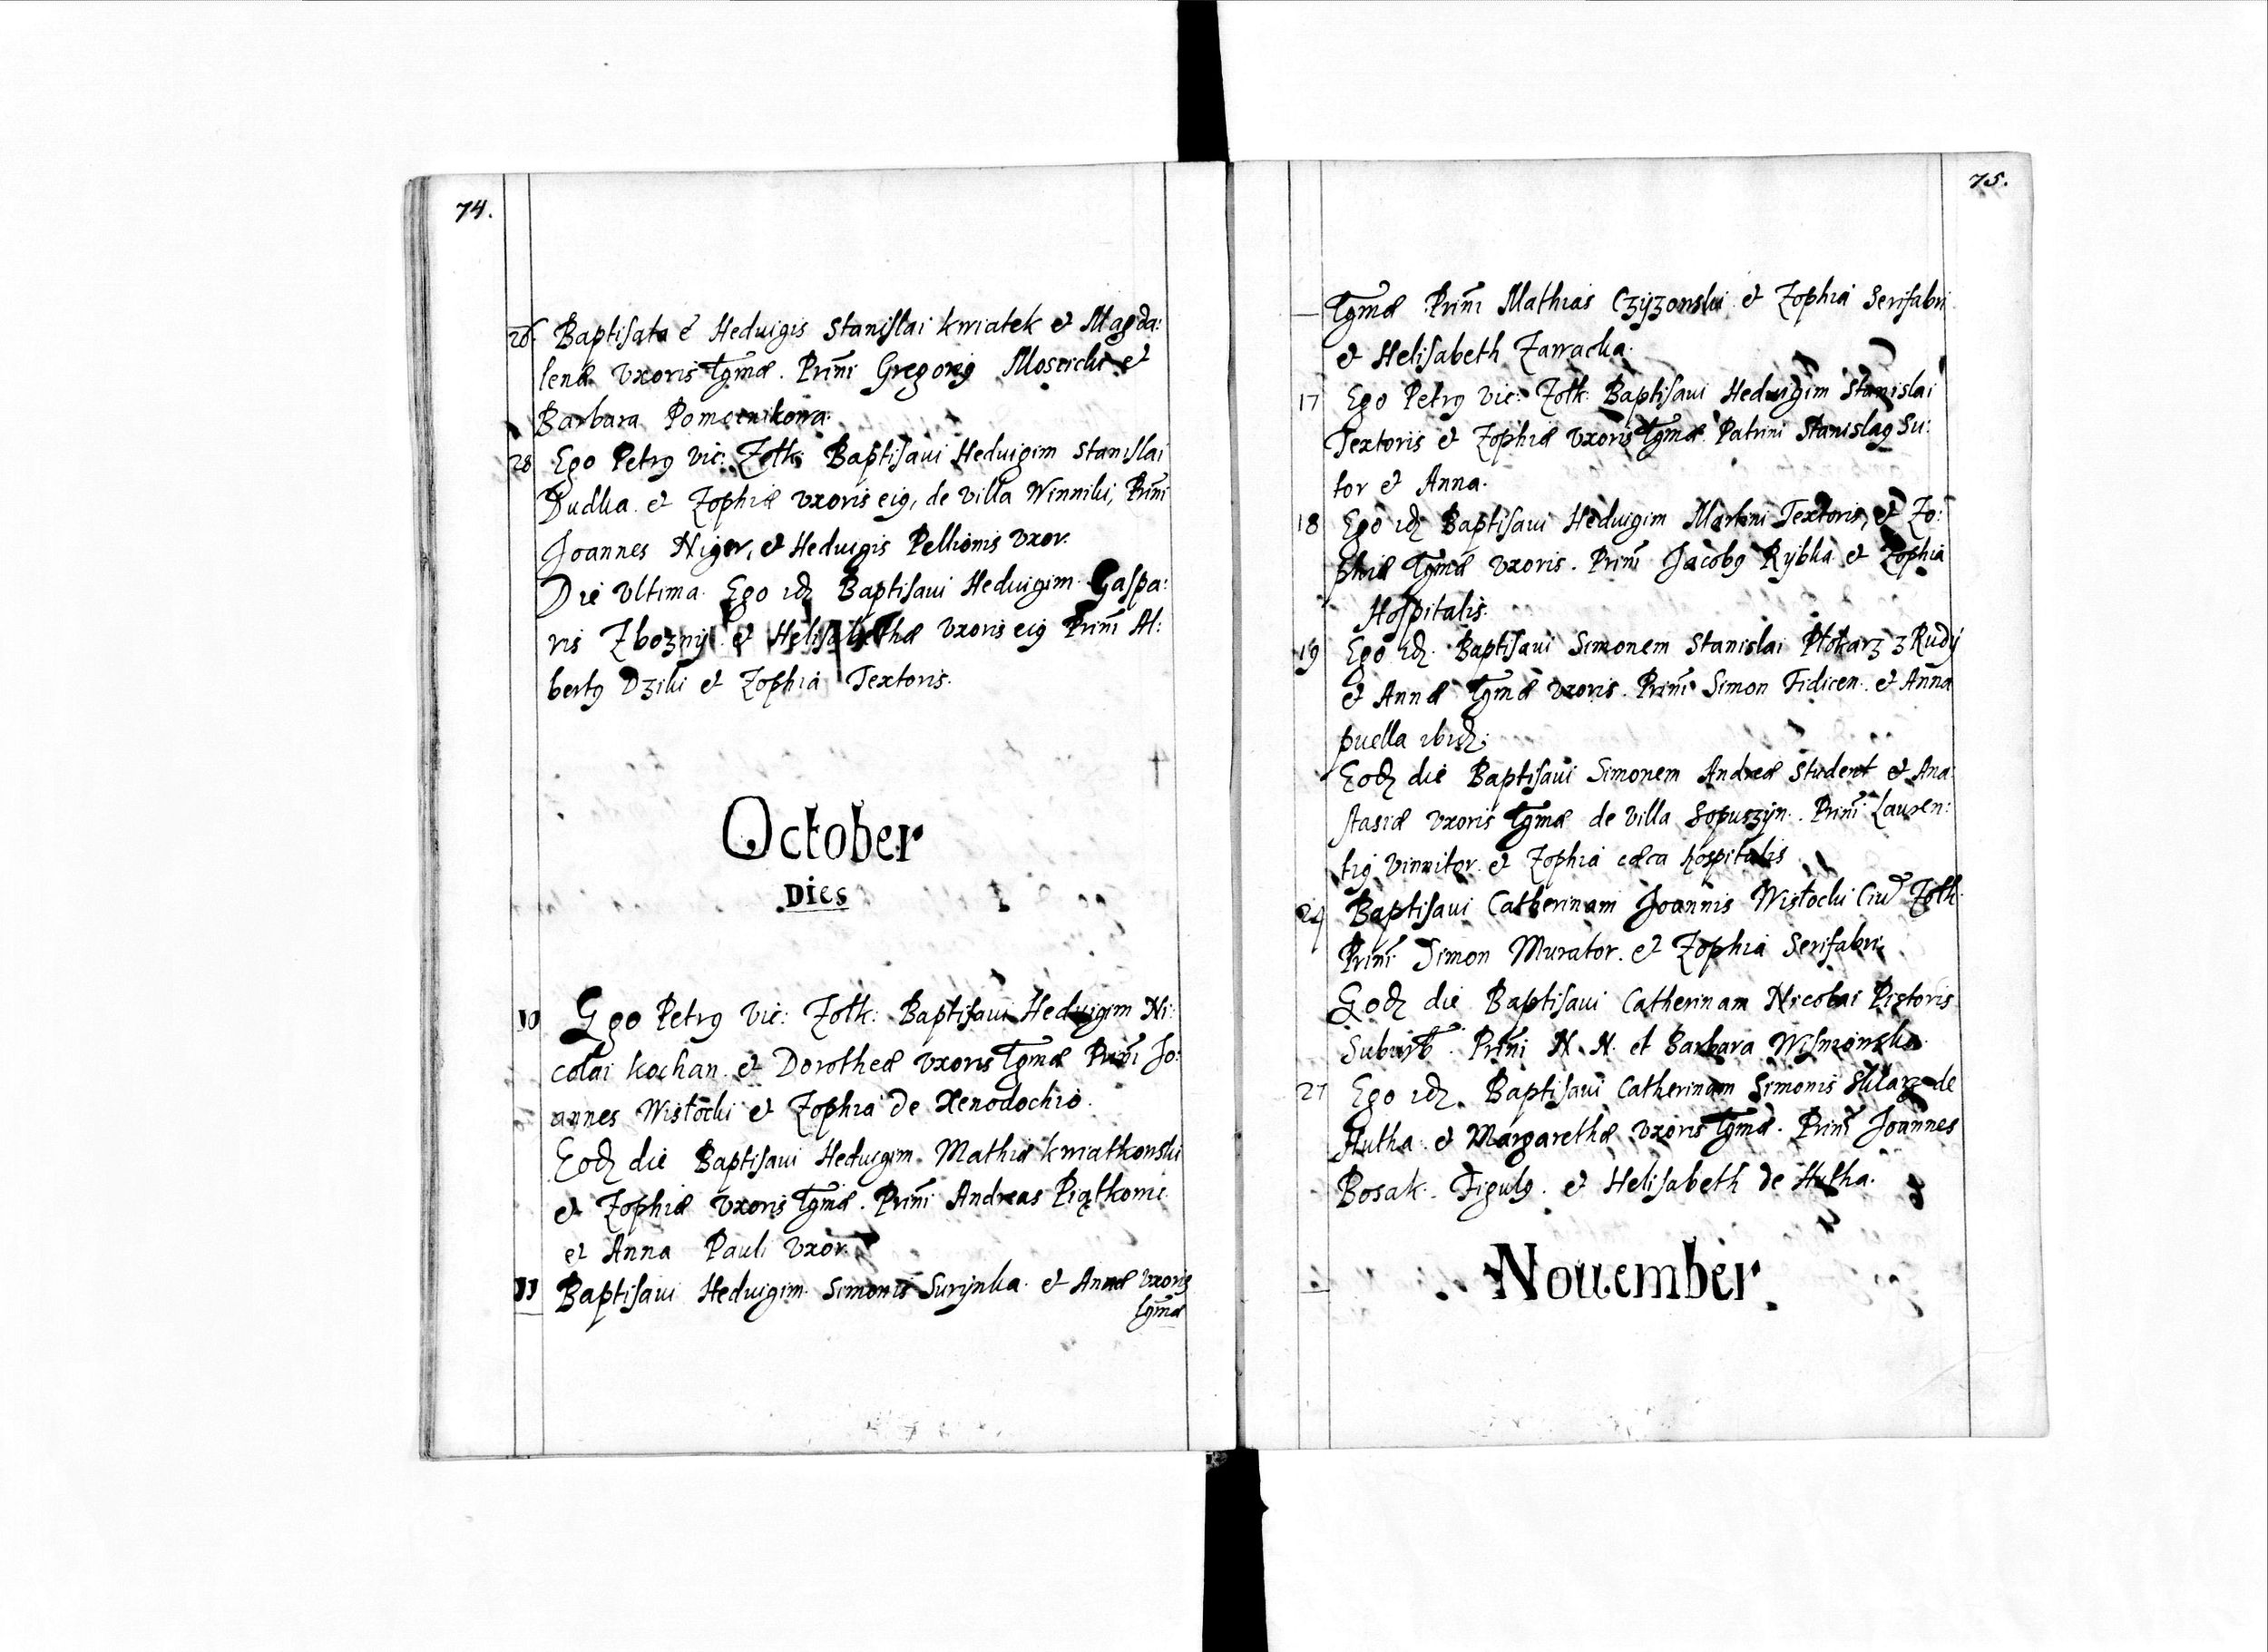 74.
26. Baptisata ē Hedvigis Stanislai kwiatek et Magda:
lenæ vxoris lgmæ. Prini Gregorig Moscicki et
Barbara Pomocnikowa.
28 Ego Petrg vic: Zolk: Baptisaui Hedvigim Stanislai
Dudka et Zophiæ vxoris eig, de villa Winniki, Prini
Joannes Niger, et Hedvigis Pellionis vxor.
Die vltima. Ego idz Baptisaui Hedvigim Gaspa:
ris Zboznij et Helisabethæ vxoris eig Prini Al:
bertg Dziki et Zophia Textoris.
October
Dies
10 Ego Petrg vic: Zolk: Baptisaui Hedvigim Ni:
colai kochan et Dorotheæ vxoris lgmæ Prini Jo:
annes Wistocki et Zophia de Xenodochio.
Eodz die Baptisaui Hedvigim Mathiæ kwiatkowski
et Zophiæ vxoris lgmæ. Prini Andreas Piątkowic
et Anna Pauli vxor.
11 Baptisaui Hedvigim Simonis Surynka et Annæ vxoris
lgmæ
75.
lgmæ Prini Mathias Czyzowski et Zophia Serifabri
et Helisabeth Zawacka.
17 Ego Petrg vic: Zolk: Baptisaui Hedvigim Stanislai
Textoris et Zophiæ vxoris lgmæ. Patrini Stanislag Su:
tor et Anna.
18 Ego idz Baptisaui Hedvigim Martini Textoris, et Zo:
phiæ lgmæ vxoris. Prini Jacobg Rybka et Zophia
Hospitalis.
19 Ego idz Baptisaui Simonem Stanislai Płokarz z Rudÿ
et Annæ lgmæ vxoris. Prini Simon Fidicen. et Anna
puella ibidz;
Eodz die Baptisaui Simonem Andreæ Student et Ana:
stasiæ vxoris lgmæ de villa Sopuszyn. Prini Lauren:
tig vinnitor et Zophia cæca hospitalis
24 Baptisaui Catherinam Joannis Wistocki Ciu Zolk.
Prini Simon Murator. et Zophia Serifabri.
Eodz die Baptisaui Catherinam Nicolai Pistoris
Suburb. Prini N. N. et Barbara Wisniowska.
27 Ego idz. Baptisaui Catherinam Simonis Sklarz de
Hutha. et Margarethæ vxoris lgmæ. Prini Joannes
Bosak. Figulg. et Helisabeth de Hutha.
Nouember